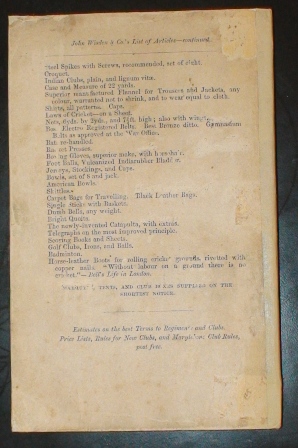 John Wisden & Co's List of Articles—continued.
Steel Spikes with Screws, recommended, set of eight.
Croquet.
Indian Clubs, plain, and lignum vitæ.
Case and Measure of 22 yards.
Superior manufactured Flannel for Trousers and Jackets, any
colour, warranted not to shrink, and to wear equal to cloth.
Shirts, all patterns. Caps.
Laws of Cricket—on a Sheet.
Nets, 6yds. by 2yds., and 7ft. high; also with
Best Electro Registered Belts. Best Bronze ditto. Gymnasium
Belts as approved at the War Office.
Bats re-handled.
Racket Presses.
Boxing Gloves, superior make, with
Foot Balls, Vulcanized Indiarubber Bladder.
Jerseys, Stockings, and Caps.
Bowls, set of 8 and jack.
American Bowls.
Skittles.
Carpet Bags for Travelling. Black Leather Bags.
Single Sticks with Baskets.
Dumb Bells, any weight.
Bright Quoits.
The newly-invented Catapulta, with extras.
Telegraphs on the most improved principle.
Scoring Books and Sheets.
Golf Clubs, Irons, and Balls.
Badminton.
Horse-leather Boots for rolling cricket grounds, rivetted with
copper nails. "Without labour on a ground there is no
cricket."—Bell's Life in London.
TENTS, AND SUPPLIED ON THE
SHORTEST NOTICE.
Estimates on the best Terms to Regiments and Clubs.
Price Lists, Rules for New Clubs, and Marylebone Club Rules,
post free.